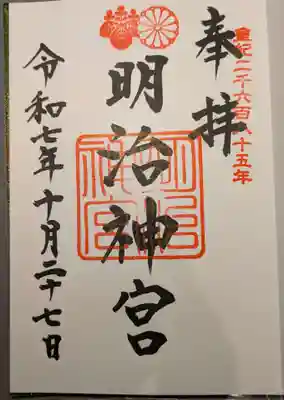 奉拝
皇紀二千六百八十五年
明治神宮
明治神宮
令和七年十月二十七日